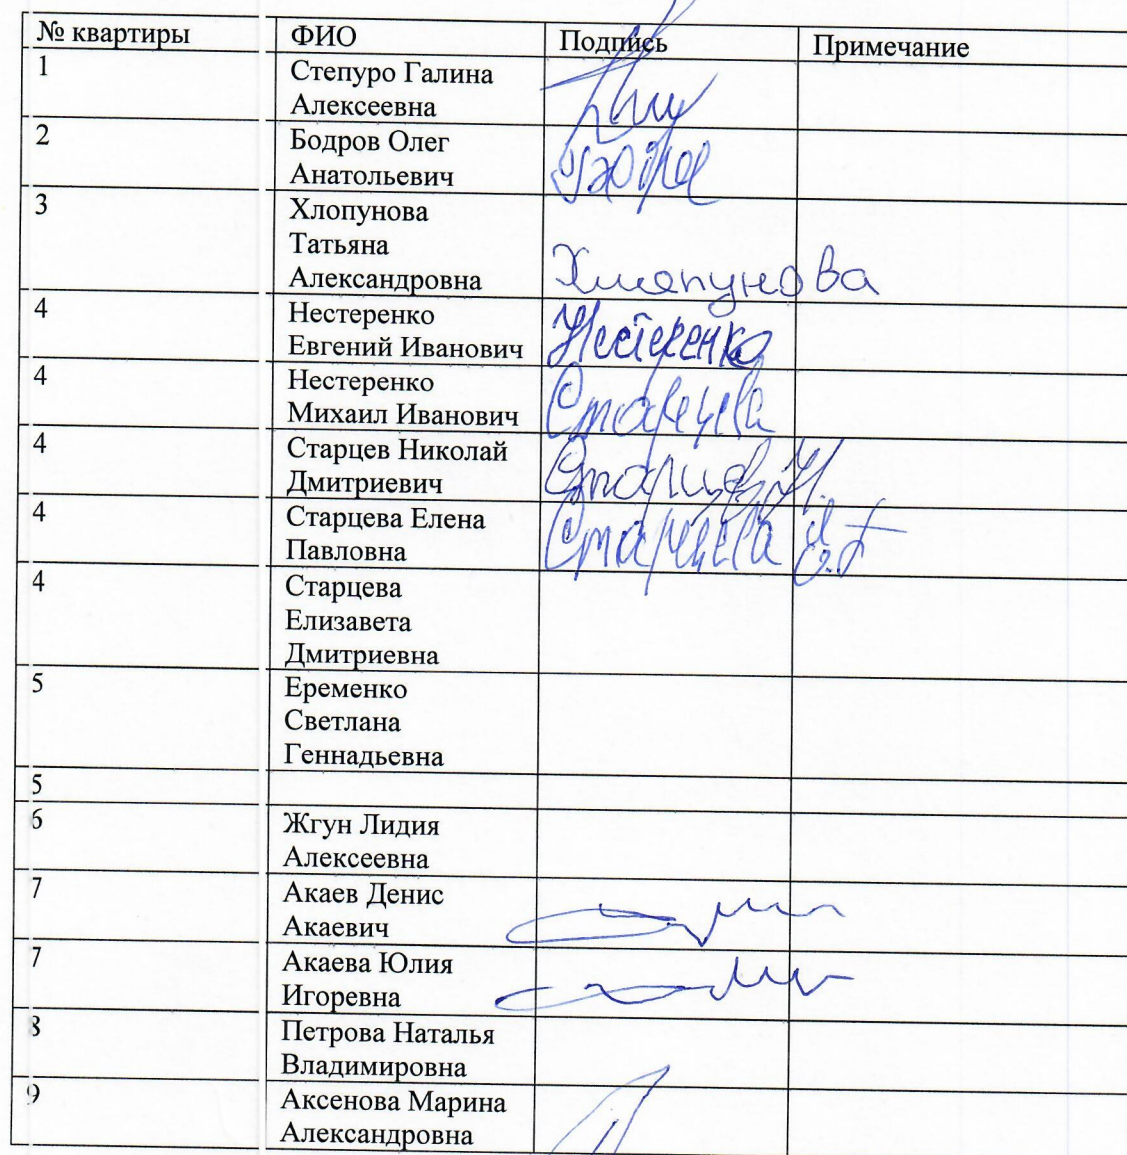 № квартиры ФИО Подпись Примечание
1 Степуро Галина
Алексеевна
2 Бодров Олег
Анатольевич
3 Хлопунова
Татьяна
Александровна Хлопунова
4 Нестеренко
Евгений Иванович Нестеренко
4 Нестеренко
Михаил Иванович Старцева
4 Старцев Николай
Дмитриевич Старцев Н.
4 Старцева Елена
Павловна Старцева
4 Старцева
Елизавета
Дмитриевна
5 Еременко
Светлана
Геннадьевна
5
6 Жгун Лидия
Алексеевна
7 Акаев Денис
Акаевич
7 Акаева Юлия
Игоревна
8 Петрова Наталья
Владимировна
9 Аксенова Марина
Александровна